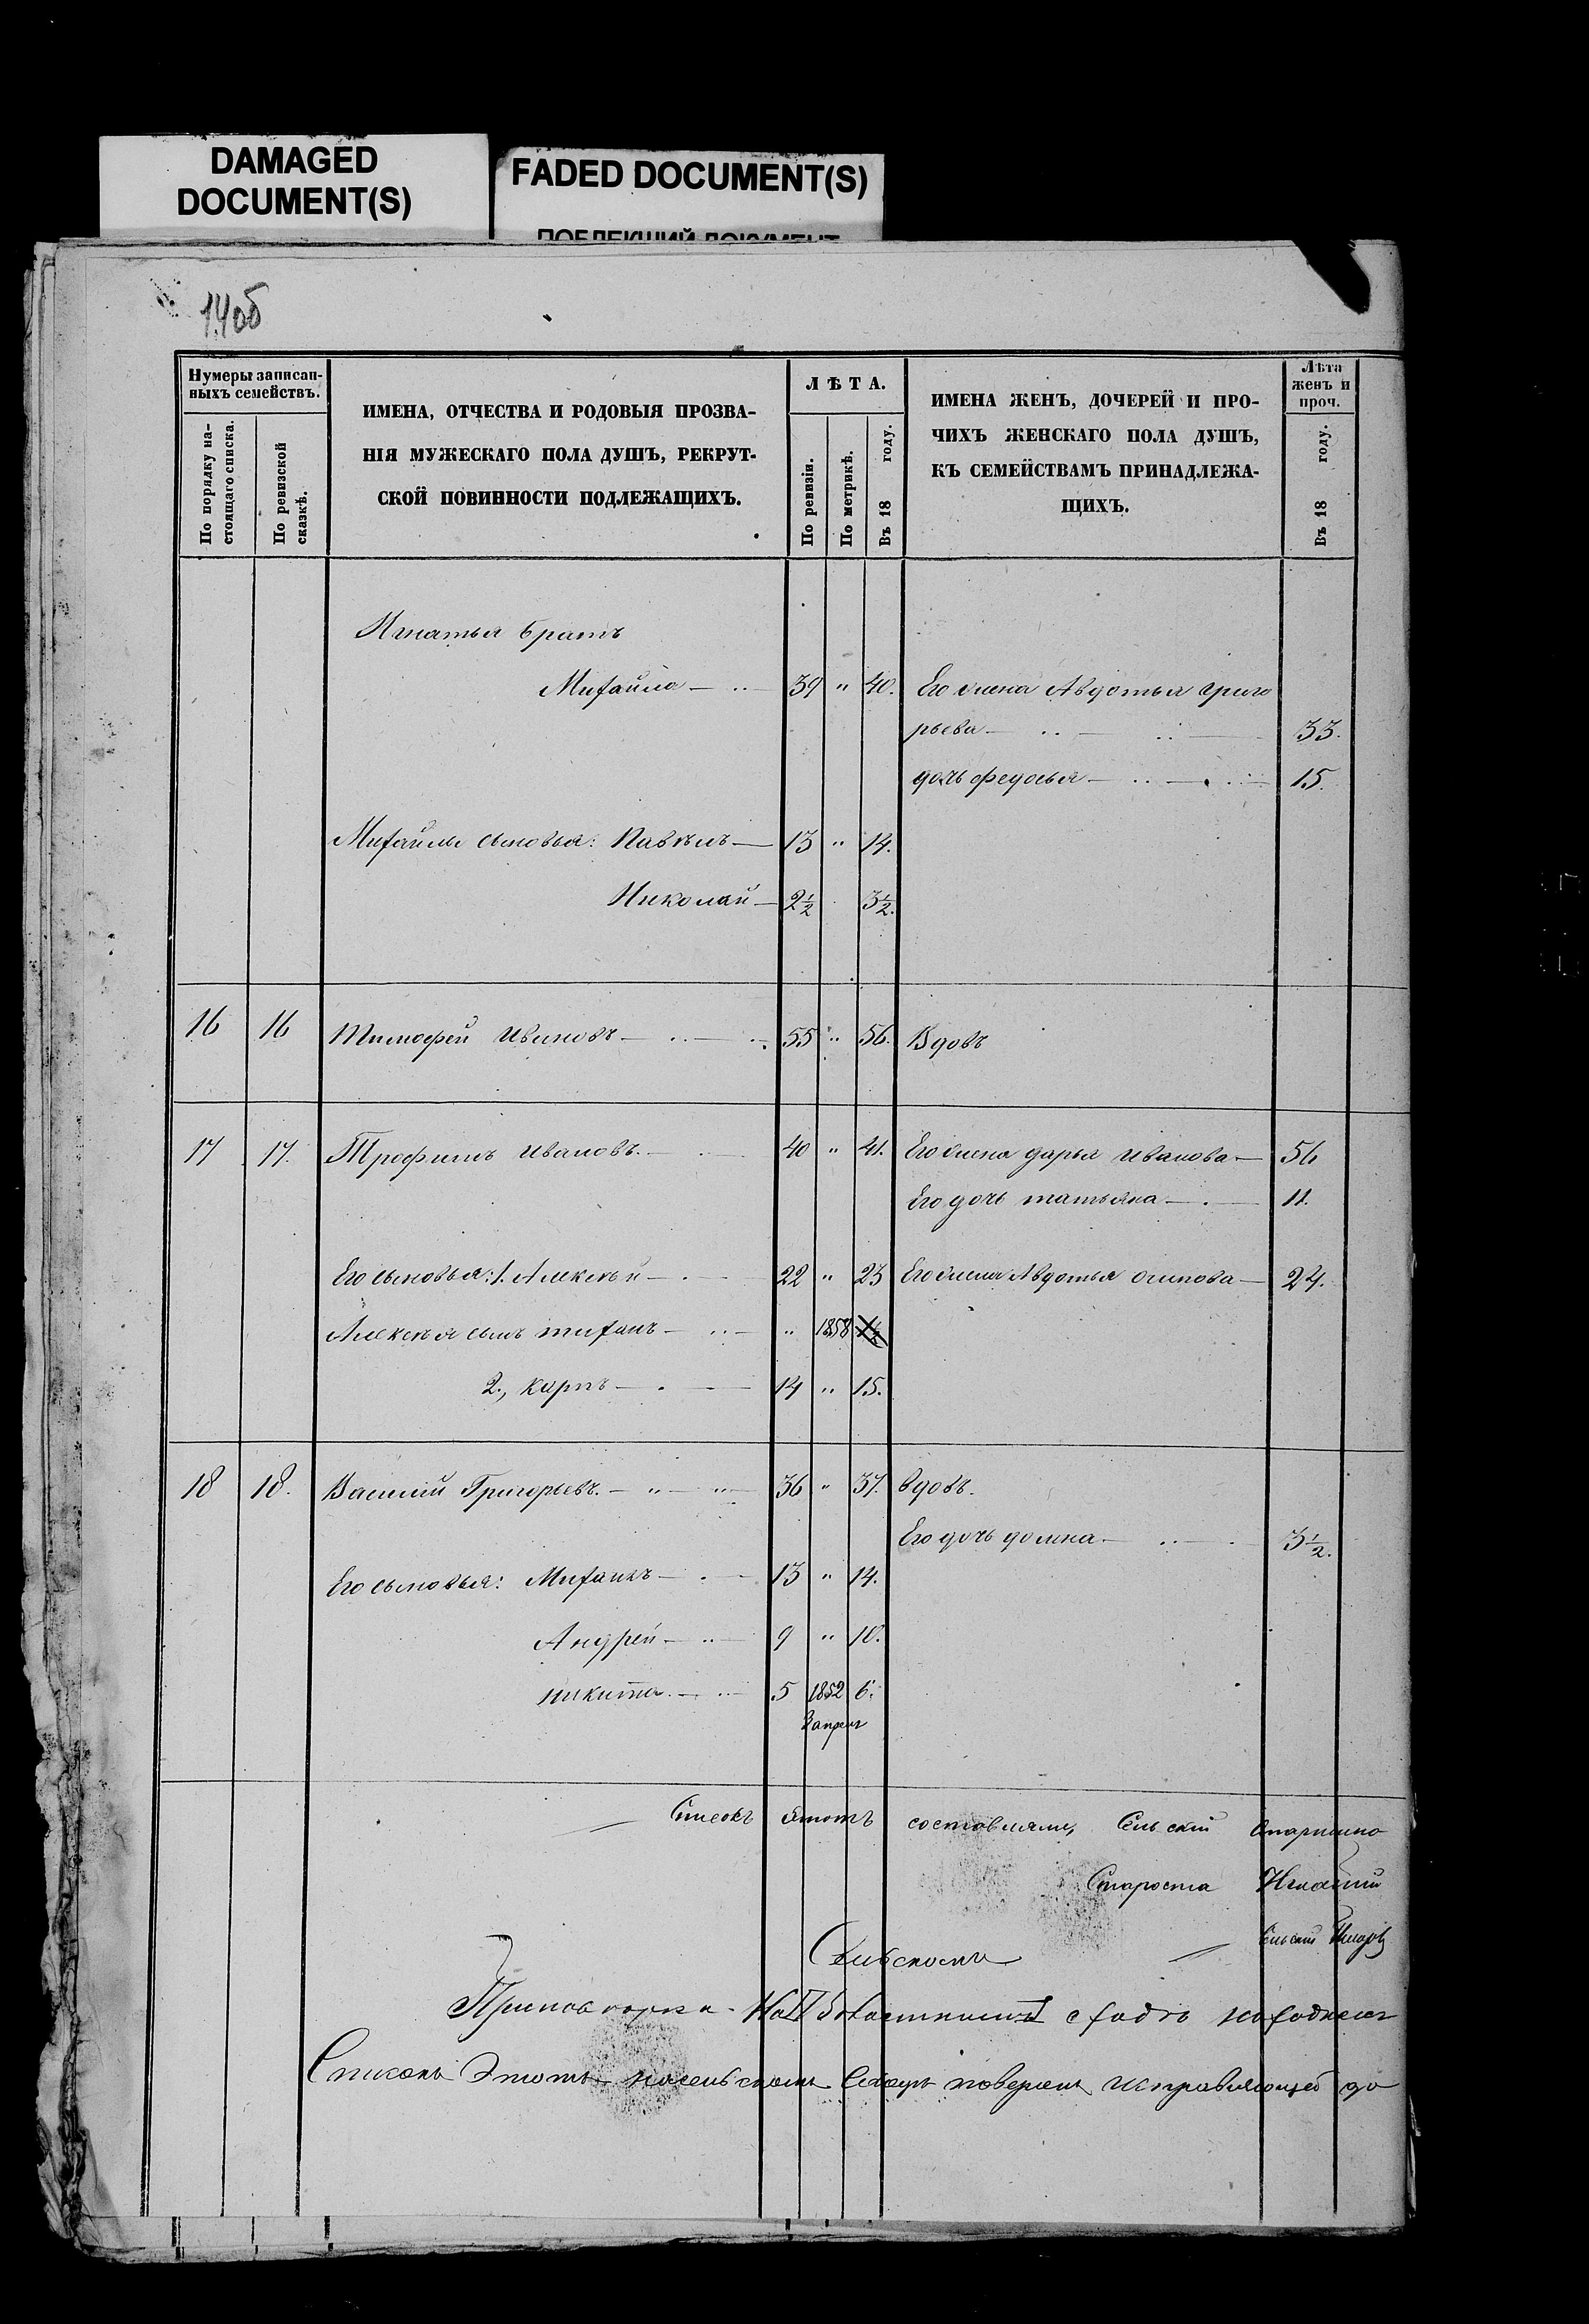 DAMAGED
DOCUMENT(S)
FADED DOCUMENT(S)
ПОБЛЕКШИЙ ДОКУМЕНТ
14об
Нумеры записан-
ныхъ семействъ.
По порядку на-
стоящаго списка.
По ревизской
сказкѣ.
ИМЕНА, ОТЧЕСТВА И РОДОВЫЯ ПРОЗВА-
НІЯ МУЖЕСКАГО ПОЛА ДУШЪ, РЕКРУТ-
СКОЙ ПОВИННОСТИ ПОДЛЕЖАЩИХЪ.
ЛѢТА.
По ревизіи.
По метрикѣ.
Въ 18 году.
ИМЕНА ЖЕНЪ, ДОЧЕРЕЙ И ПРО-
ЧИХЪ ЖЕНСКАГО ПОЛА ДУШЪ,
КЪ СЕМЕЙСТВАМЪ ПРИНАДЛЕЖА-
ЩИХЪ.
Лѣта
женъ и
проч.
Въ 18 году.
Игнатья братъ
Михайла — 39 " 40. Его жена Авдотья Григо
рьева — 33.
дочь федосья — 15.
Михайлы сыновья: Павелъ — 13 " 14.
Николай — 2½ 3½.
16 16 Тимофей Ивановъ — 55 " 56. Вдовъ
17 17. Трофимъ Ивановъ. — 40 " 41. Его жена дарья Иванова —
Его дочь татьяна — 11.
Его сыновья: 1. Алексѣй — 22 " 23 Его жена Авдотья осипова — 24.
Алексѣя сынъ — " 1858
2., карпъ — 14 " 15.
18 18. Василій Григорьевъ. — 36 " 37. вдовъ.
Его дочь домна — 3½.
Его сыновья: — 13 " 14.
Андрей — 9 " 10.
никита. — 5 1852 6.
Списокъ этотъ составлялъ, Сельскій
Староста Игнатій
Сельскомъ
Списокъ Этотъ